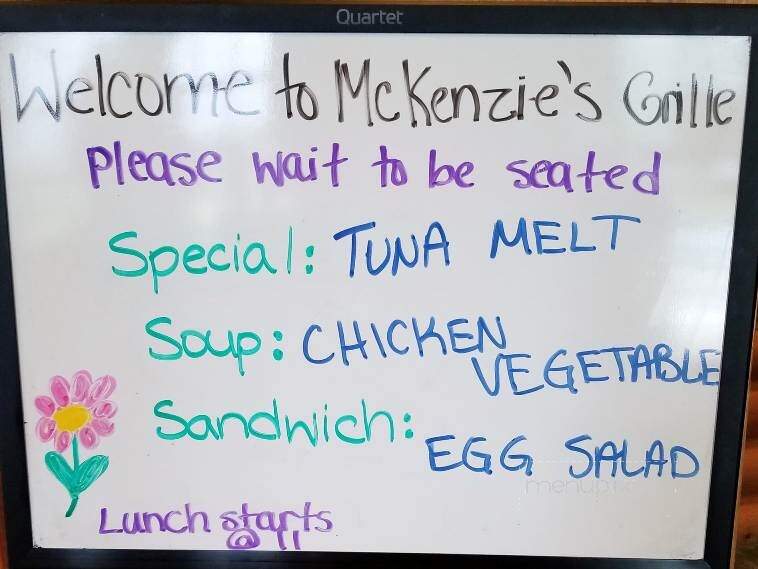 Quartet
Welcome to McKenzie's Grille
Please wait to be seated
Special: TUNA MELT
Soup: CHICKEN
VEGETABLE
Sandwich:
EGG SALAD
menupix
Lunch starts
@ 11